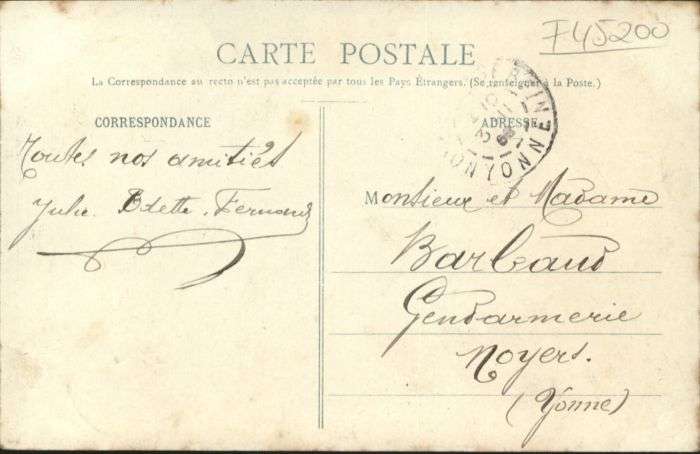 F45200
CARTE POSTALE
La Correspondance au recto n'est pas acceptée par tous les Pays Étrangers. (Se renseigner à la Poste.)
CORRESPONDANCE
ADRESSE
YONNE
Toutes nos amitiés
Julie. Odette. Fernand
Monsieur et Madame
Barbaud
Gendarmerie
Noyers.
(Yonne)